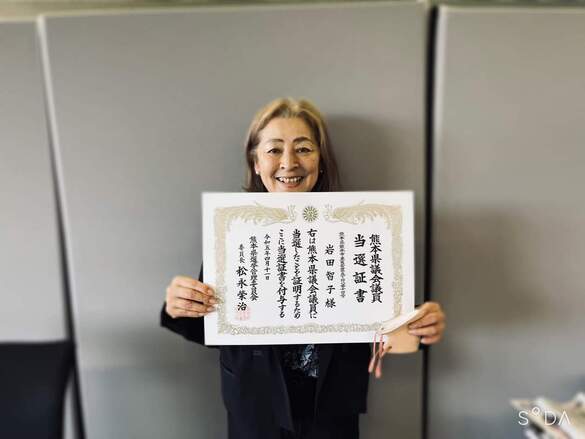 熊本県議会議員
当選証書
岩田智子様
右は熊本県議会議員に
当選したことを証明するため
ここに当選証書を付与する
令和五年四月十一日
熊本県選挙管理委員会
委員長 松永榮治
SODA